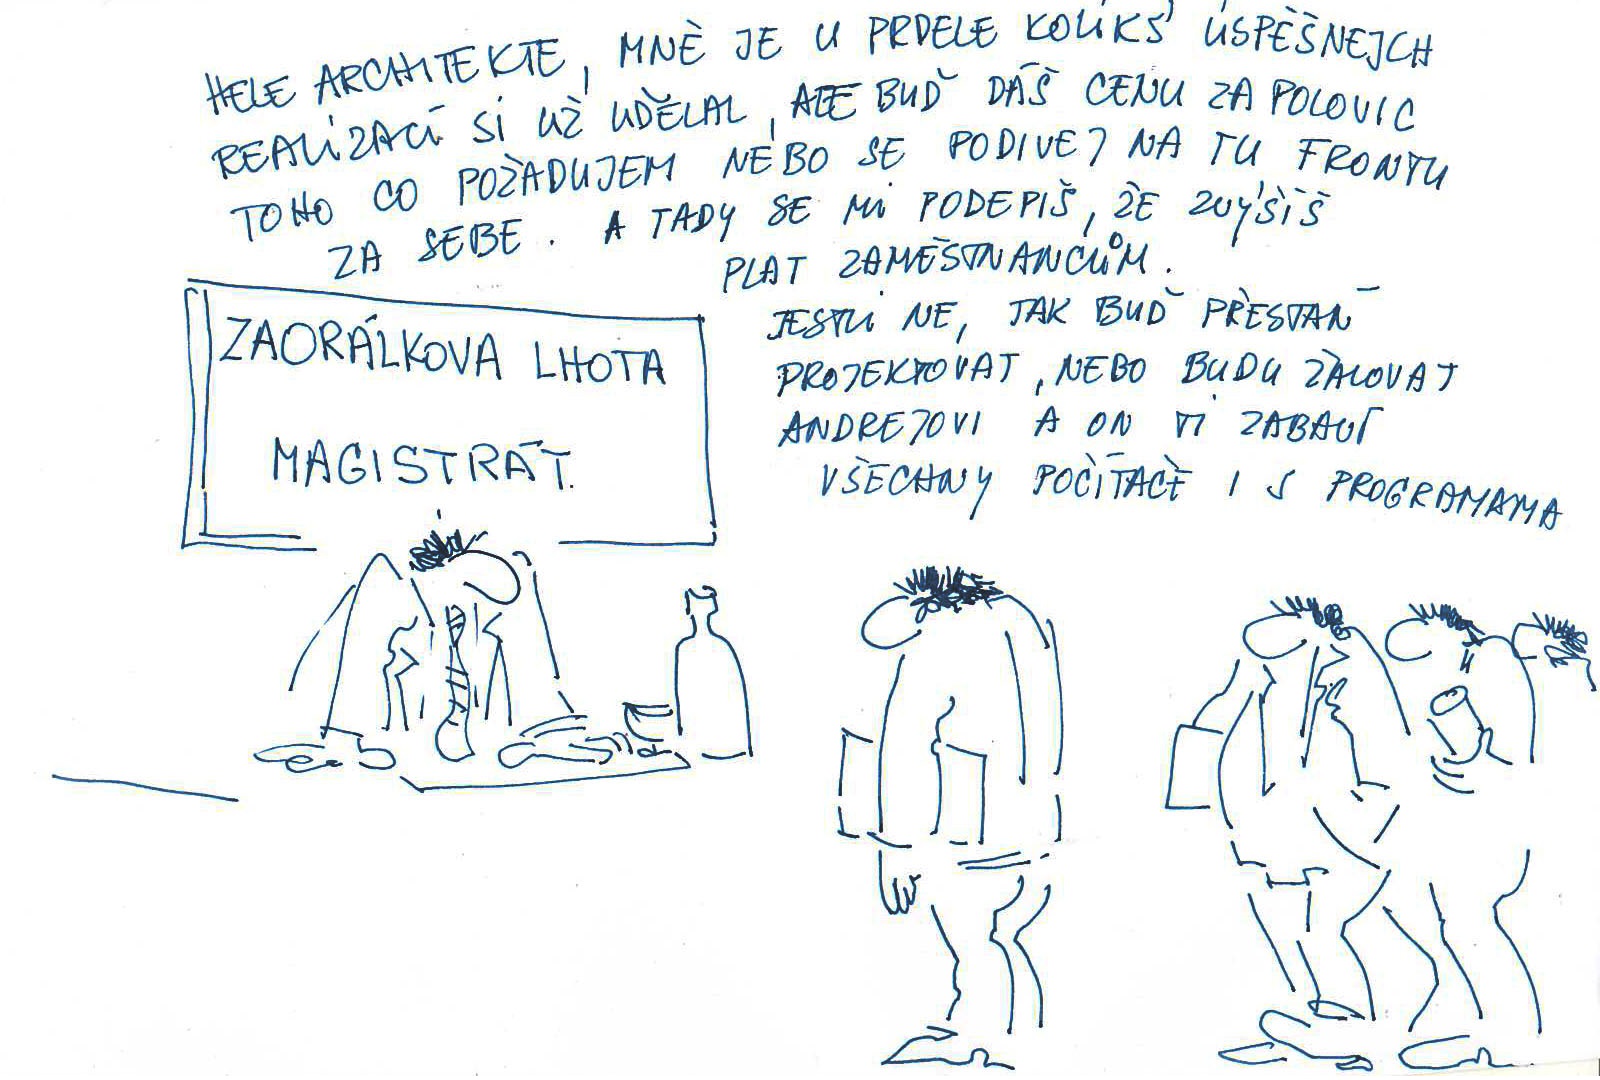 HELE ARCHITEKTE, MNĚ JE U PRDELE KOLIKS ÚSPĚŠNEJCH
REALIZACÍ SI UŽ UDĚLAL, ALE BUĎ DÁŠ CENU ZA POLOVIC
TOHO CO POŽADUJEM NEBO SE PODIVEJ NA TU FRONTU
ZA SEBE. A TADY SE MI PODEPIŠ, ŽE ZVÝŠÍŠ
PLAT ZAMĚSTNANCŮM.
JESTLI NE, TAK BUĎ PŘESTAŇ
PROJEKTOVAT, NEBO BUDU ŽALOVAT
ANDREJOVI A ON TI ZABAVÍ
VŠECHNY POČÍTAČE I S PROGRAMAMA
ZAORÁLKOVA LHOTA
MAGISTRÁT.